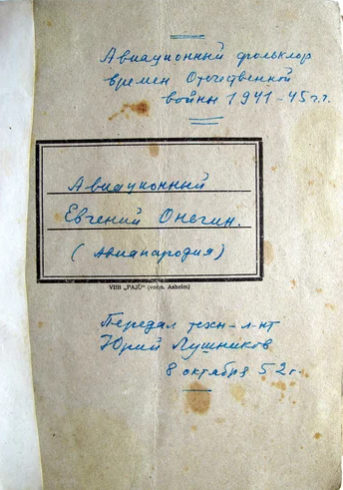 Авиационный фольклор
времен Отечественной
войны 1941-45 г.г.
Авиационный
Евгений Онегин.
(Авиапародия)
VEB „PAJŪ“
Передал техн-л-нт
Юрий Лушников
8 октября 52г.